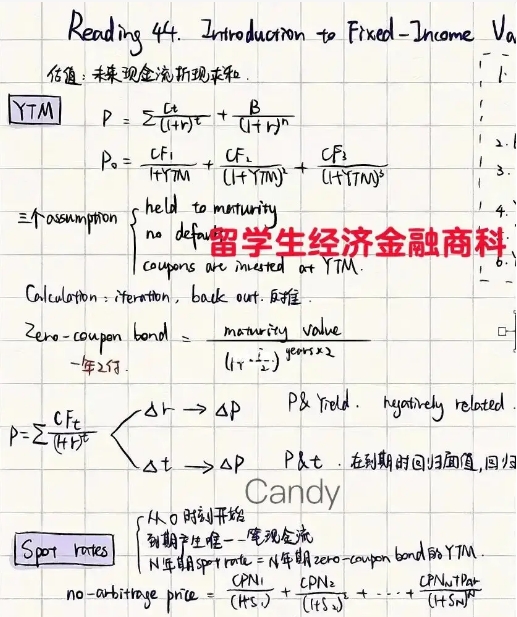 Reading 44. Introduction to Fixed-Income Va
估值：未来现金流折现求和.
1.
YTM
P = Σ Ct/(1+r)^t + B/(1+r)^n
2.
P₀ = CF₁/1+YTM + CF₂/(1+YTM)² + CF₃/(1+YTM)³
3.
三个assumption { held to maturity
4.
no default
留学生经济金融商科
coupons are invested at YTM.
6.
Calculation : iteration, back out. 反推.
Zero-coupon bond = maturity value/(1+ i/2)^years×2
一年2付.
P=Σ CFt/(1+r)^t
Δr → ΔP P& Yield. negatively related.
Δt → ΔP P&t. 在到期时回归面值,回归
Candy
从0时刻开始
Spot rates 到期产生唯一一笔现金流
N年期spot rate = N年期zero-coupon bond的YTM.
no-arbitrage price = CPN₁/(1+S₁) + CPN₂/(1+S₂)² + ... + CPNN+Par/(1+SN)^N